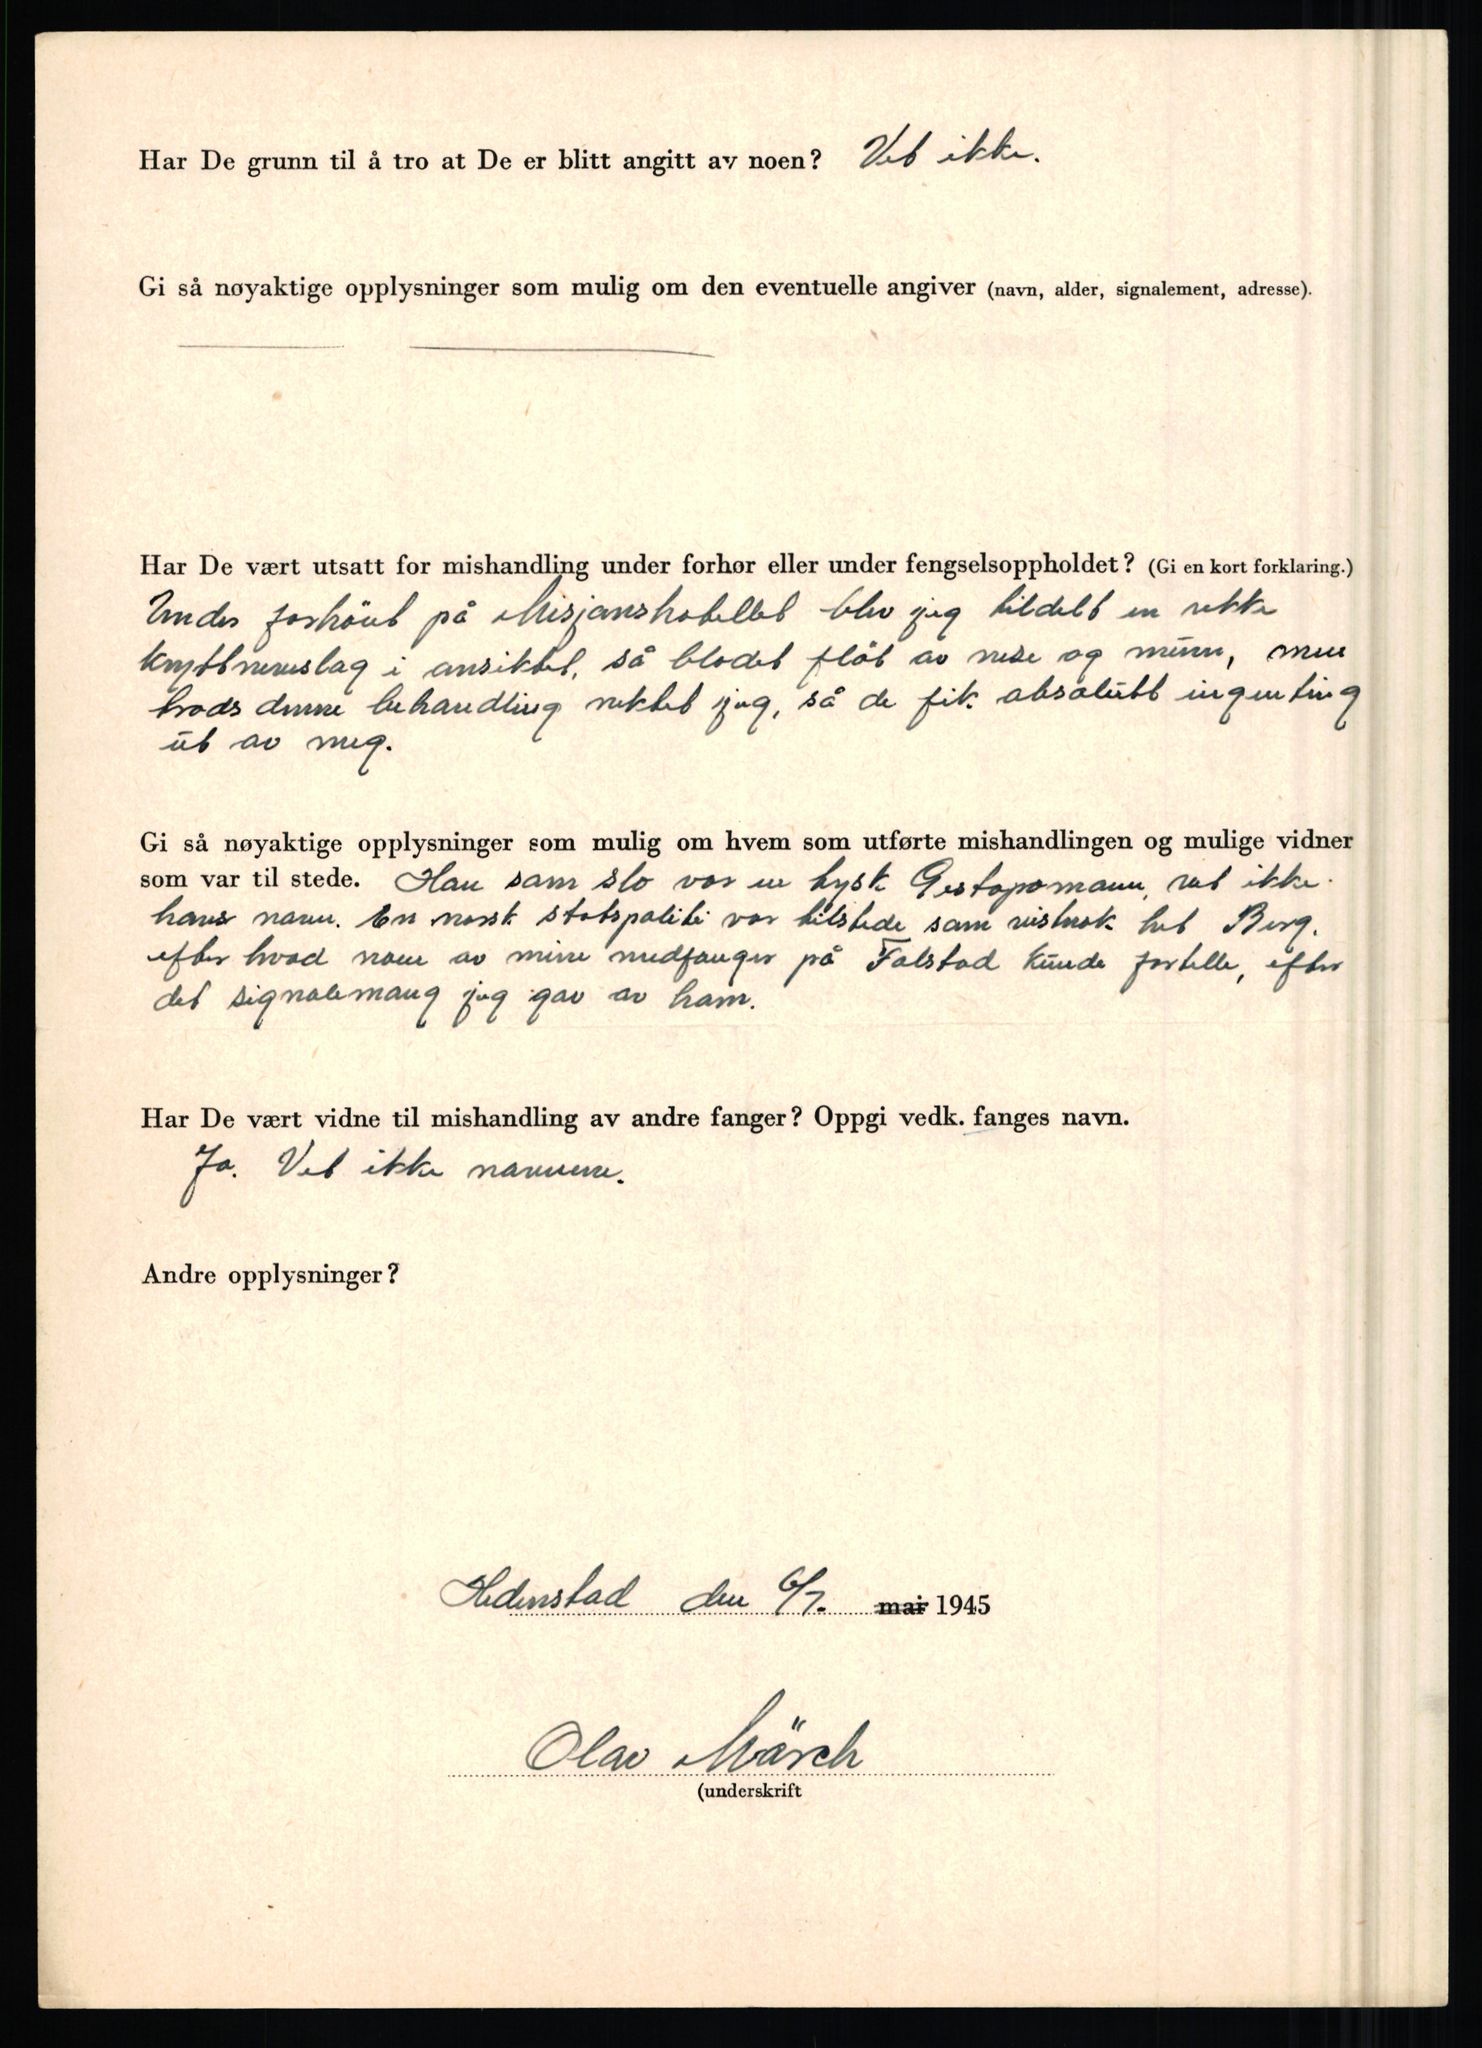 Har De grunn til å tro at De er blitt angitt av noen? Vet ikke.
Gi så nøyaktige opplysninger som mulig om den eventuelle angiver (navn, alder, signalement, adresse).
Har De vært utsatt for mishandling under forhør eller under fengselsoppholdet? (Gi en kort forklaring.)
Under forhöret på Misjonshotellet blev jeg tildelt en rekke
knyttneveslag i ansiktet, så blodet flöt av nese og munn, men
trods denne behandling nektet jeg, så de fik absolutt ingenting
ut av meg.
Gi så nøyaktige opplysninger som mulig om hvem som utførte mishandlingen og mulige vidner
som var til stede. Han som slo var en tysk Gestapomann, vet ikke
hans navn. En norsk statspoliti var tilstede som vistnok het Berg,
efter hvad noen av mine medfanger på Falstad kunde fortelle, efter
det signalemang jeg gav av ham.
Har De vært vidne til mishandling av andre fanger? Oppgi vedk. fanges navn.
Ja. Vet ikke navnene.
Andre opplysninger?
Hedenstad den 6/7. mai 1945
Olav Märch
(underskrift